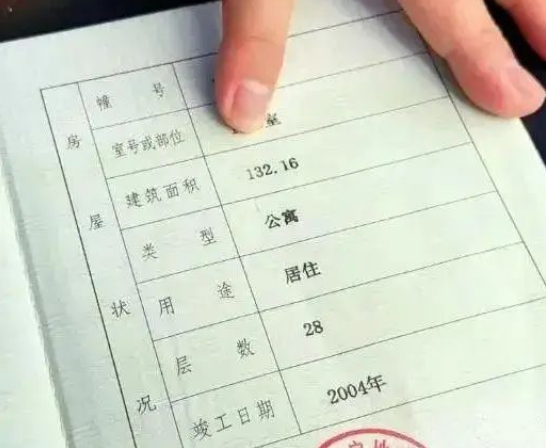 房屋状况
幢号
室号或部位 室
建筑面积 132.16
类型 公寓
用途 居住
层数 28
竣工日期 2004年